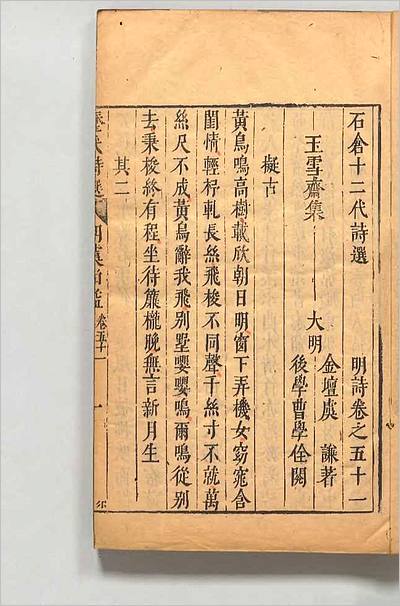 石倉十二代詩選　明詩卷之五十一
玉雪齋集
大明
金壇虞　謙著
後學曹學佺閱
擬古
黃鳥鳴高樹載欣朝日明窗下弄機女窈窕含
閨情輕杼軋長絲飛梭不同聲千絲寸不就萬
絲尺不成黃鳥辭我飛別墅嚶嚶鳴爾鳴從別
去秉梭終有程坐待簾櫳晚無言新月生
其二
卷五十一　一